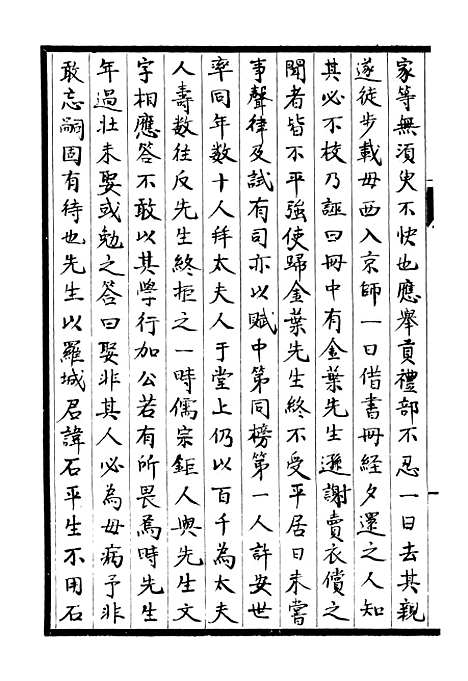 家等無須臾不快也應舉貢禮部不忍一日去其親
遂徒步載母西入京師一日借書冊經夕還之人知
其必不校乃誣曰冊中有金葉先生遜謝賣衣償之
聞者皆不平強使歸金葉先生終不受平居日未嘗
事聲律及試有司亦以賦中第同榜第一人許安世
率同年数十人拜太夫人于堂上仍以百千為太夫
人壽数往反先生終拒之一時儒宗鉅人與先生文
字相應答不敢以其學行加公若有所畏焉時先生
年過壯未娶或勉之答曰娶非其人必為母病予非
敢忘嗣固有待也先生以羅城君諱石平生不用石